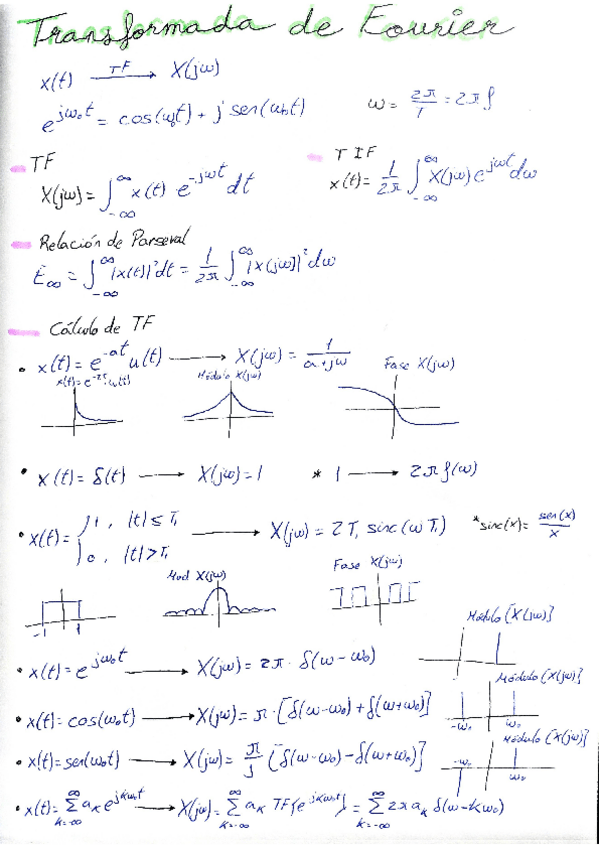 Transformada de Fourier
x(t) TF→ X(jω)
e^{jω₀t} = cos(ω₀t) + j sen(ω₀t)
ω = 2π/T = 2πf
TF
X(jω) = ∫_{-∞}^{∞} x(t) e^{-jωt} dt
TIF
x(t) = 1/2π ∫_{-∞}^{∞} X(jω) e^{jωt} dω
Relación de Parseval
E∞ = ∫_{-∞}^{∞} |x(t)|² dt = 1/2π ∫_{-∞}^{∞} |x(jω)|² dω
Cálculo de TF
• x(t) = e^{-at} u(t) → X(jω) = 1/(a+jω)
x(t) = e^{-2t} u(t)
Módulo X(jω)
Fase X(jω)
• x(t) = δ(t) → X(jω) = 1 * 1 → 2π δ(ω)
• x(t) = { 1, |t| ≤ T₁
0, |t| > T₁
→ X(jω) = 2T₁ sinc(ω T₁) *sinc(x) = sen(x)/x
Mod X(jω)
Fase X(jω)
-1 1
• x(t) = e^{jω₀t} → X(jω) = 2π · δ(ω-ω₀)
Módulo [X(jω)]
• x(t) = cos(ω₀t) → X(jω) = π · [δ(ω-ω₀) + δ(ω+ω₀)]
Módulo [X(jω)]
-ω₀ ω₀
• x(t) = sen(ω₀t) → X(jω) = π/j [δ(ω-ω₀) - δ(ω+ω₀)]
Módulo [X(jω)]
-ω₀ ω₀
• x(t) = ∑_{k=-∞}^{∞} a_k e^{jkω₀t} → X(jω) = ∑_{k=-∞}^{∞} a_k TF{e^{jkω₀t}} = ∑_{k=-∞}^{∞} 2π a_k δ(ω-kω₀)